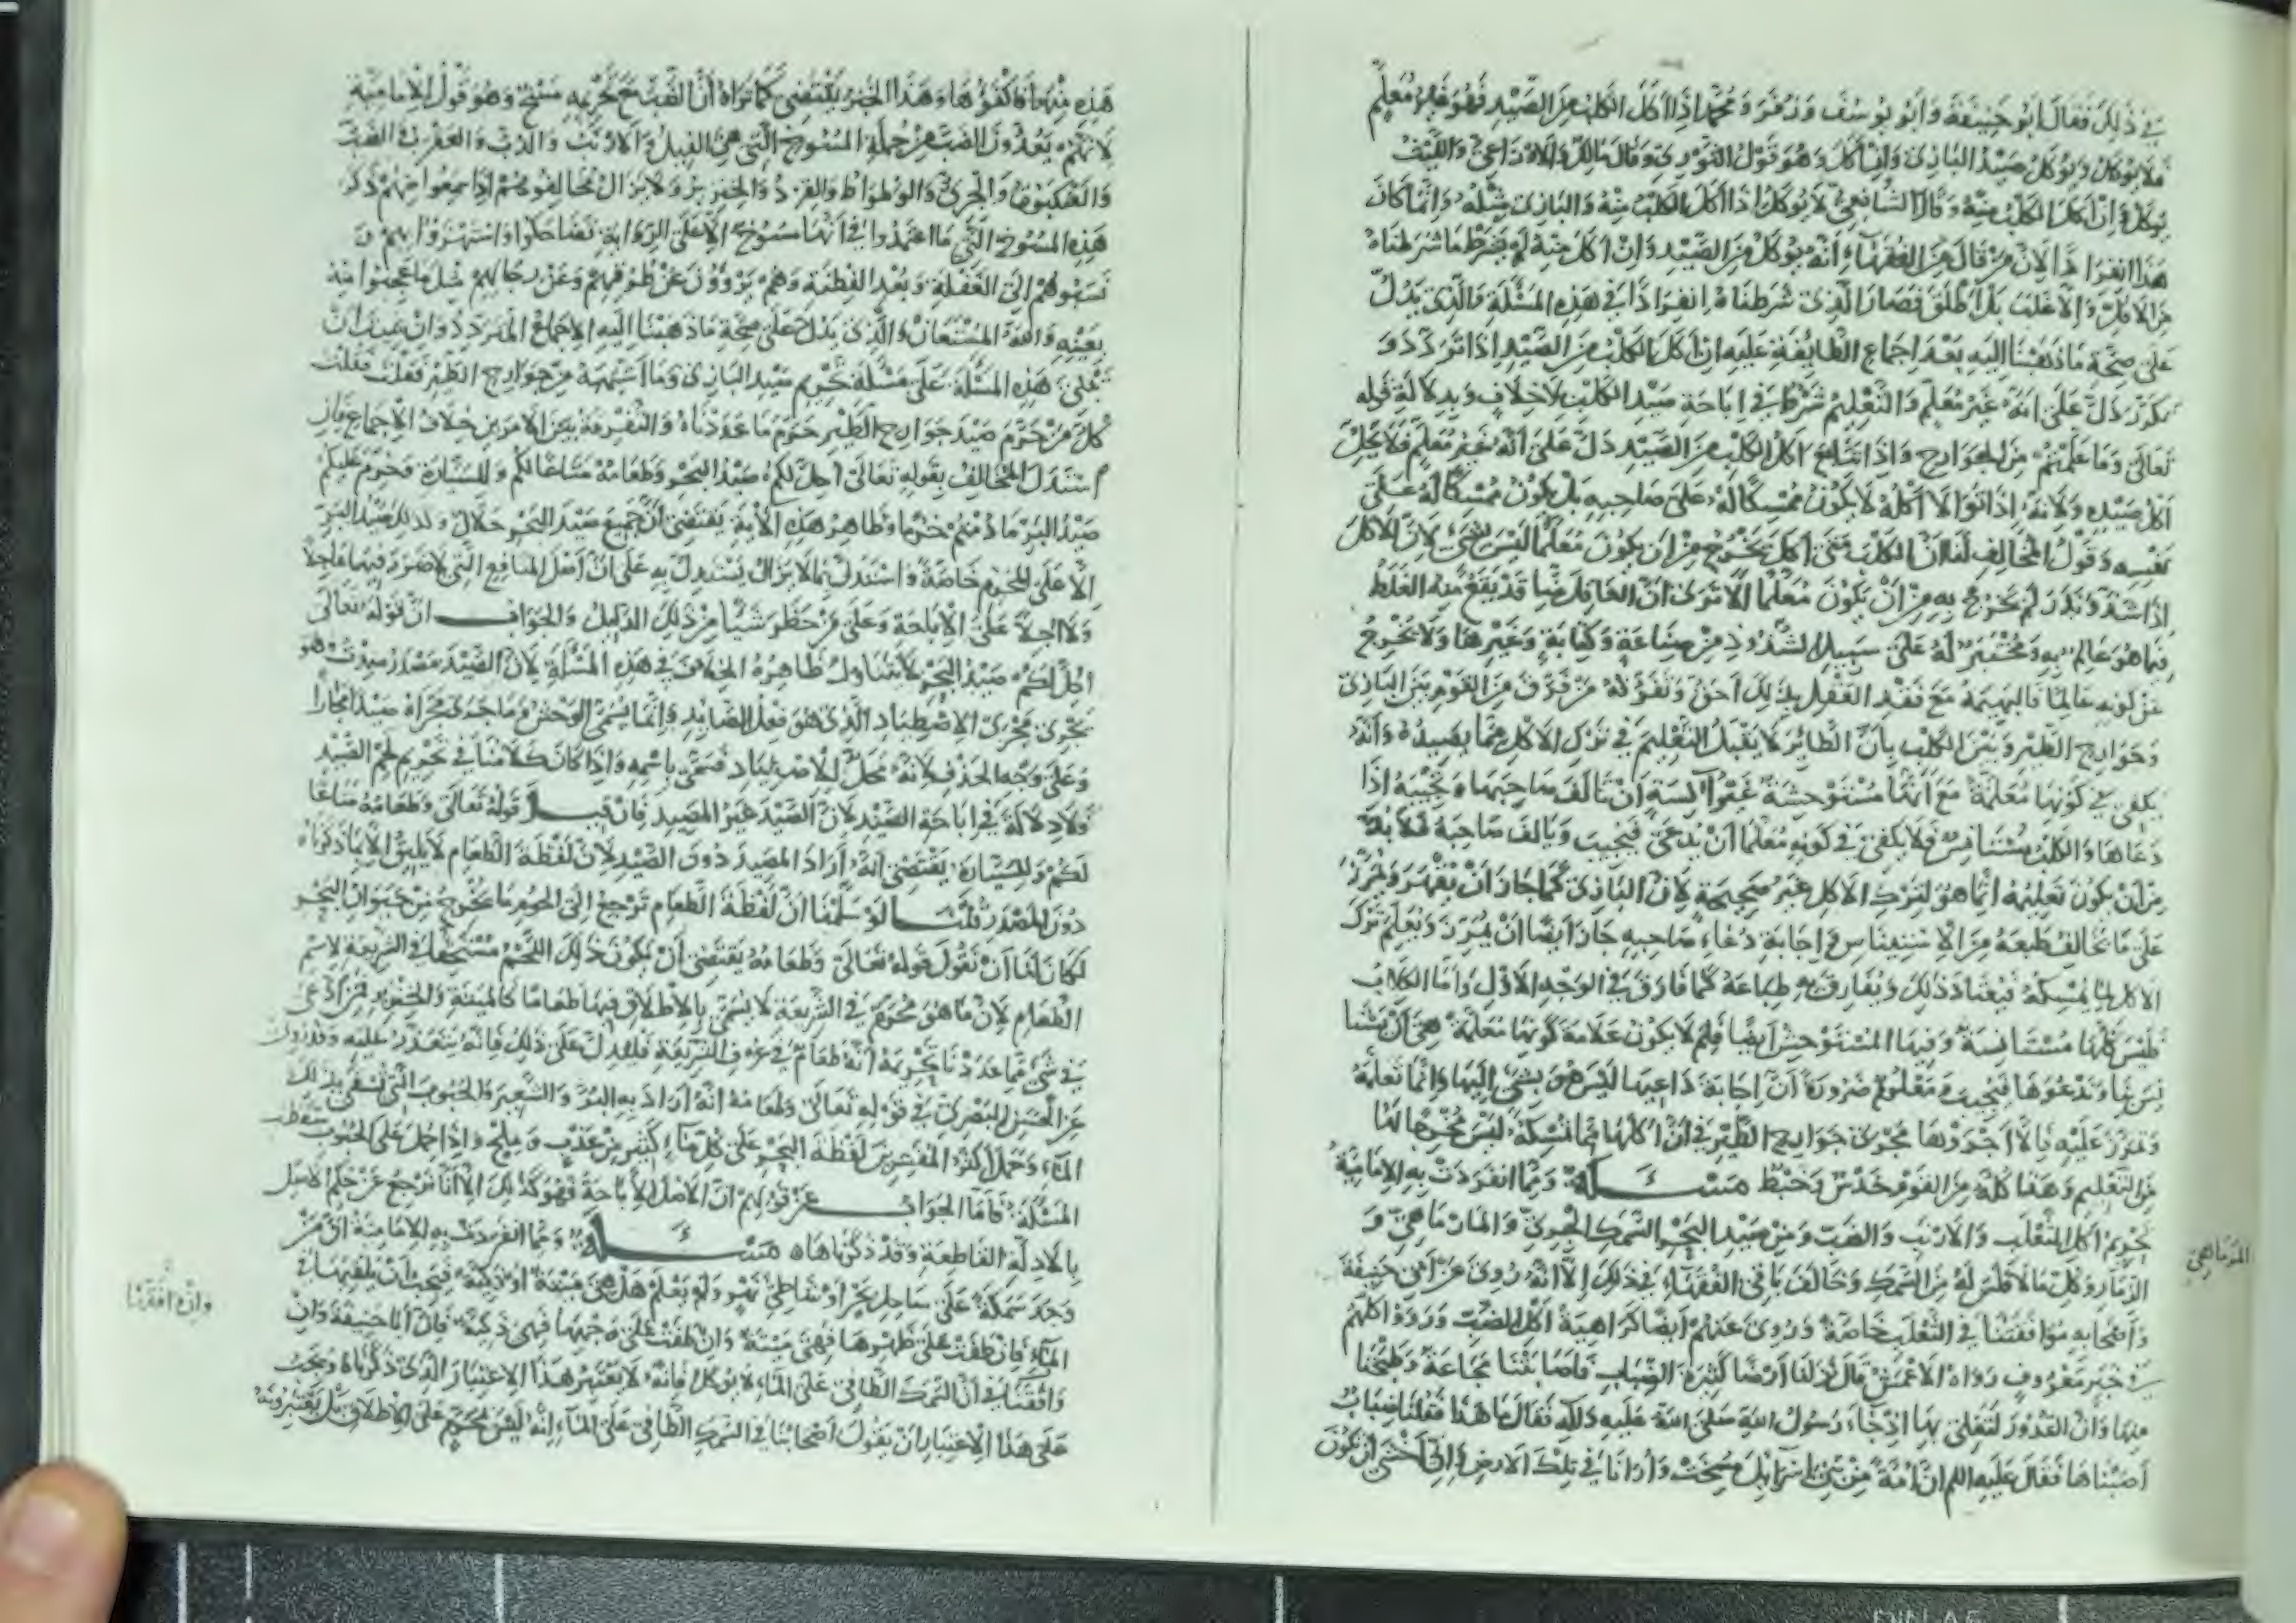 في ذلك فقال ابو حنيفة وابو يوسف وزفر ومحمد اذا اكل الكلب من الصيد فهو غير معلم
فلا يؤكل ويؤكل صيد البازي وان اكل وهو قول الثوري وقال مالك والاوزاعي والليث
يؤكل وان اكل الكلب منه وقال الشافعي لا يؤكل اذا اكل الكلب منه والبازي مثله وانما كان
هذا انفرادا لان من قال من الفقهاء انه يؤكل من الصيد وان اكل منه لم يشترط ما شرطناه
من الاقل والاغلب بل اطلق فصار الذي شرطناه انفرادا في هذه المسئلة والذي يدل
على صحة ما ذهبنا اليه بعد اجماع الطايفة عليه ان اكل الكلب من الصيد اذا تردد و
تكرر دل على انه غير معلم والتعليم شرط في اباحة صيد الكلب لا خلاف وبدلالة قوله
تعالى وما علمتم من الجوارح واذا تتابع اكل الكلب من الصيد دل على انه غير معلم فلا يحل
اكل صيده ولانه اذا توالا اكله لا يكون ممسكا له على صاحبه بل يكون ممسكا له على
نفسه وقول المخالف لنا ان الكلب متى اكل يخرج من ان يكون معلما ليس بشيء لان الاكل
اذا شذ وندر لم يخرج به من ان يكون معلما الا ترى ان العاقل منا قد يقع منه الغلط
فيما هو عالم به ومختبر له على سبيل الشذوذ من صناعة وكتابة وغيرها ولا يخرج
عن كونه عالما فالبهيمة مع فقد العقل بذلك احق ونقول له من فرق من القوم بين البازي
وجوارح الطير وبين الكلب بان الطائر لا يقبل التعليم في ترك الاكل مما يصيده وانه
يكفي في كونها معلمة مع انها مستوحشة غير آنسة ان تالف صاحبها وتجيبه اذا
دعاها والكلب مستانس فلا يكفي في كونه معلما ان يدعى فيجيب ويالف صاحبه فلا بد
من ان يكون تعليمه انما هو لترك الاكل غير صحيحة لان البازي كما جاز ان يقهر ويمرن
على ما يخالف طبعه من الاستيناس واجابة دعاء صاحبه جاز ايضا ان يمرن ويعلم ترك
الاكل لما يمسكه فيعتاد ذلك ويفارق به طباعه كما فارق في الوجه الاول واما الكلاب
فليس كلها مستانسة وفيها المستوحش ايضا فلم لا يكون علامة كونها معلمة هي ان يستا
نس بنا وندعوها فيجيب ومعلوم ضرورة ان اجابة داعيها ليس هو بشيء اليها وانما تعلمه
وتمرن عليه فالا اجروها مجرى جوارح الطير في ان اكلها مما تمسكه ليس مخرجا لها
من التعليم وهذا كله من القوم خدس وخبط مسئلة ومما انفردت به الامامية
تحريم اكل الثعلب والارنب والضب ومن صيد البحر السمك الجري والمارماهي و
الزمار وكل ما لا فلس له من السمك وخالف باقي الفقهاء في ذلك الا انه روي عن ابي حنيفة
واصحابه موافقتنا في الثعلب خاصة وروي عنهم ايضا كراهية اكل الضب ورووا كلهم
في خبر معروف رواه الاعمش قال نزلنا ارضا كثيرة الضباب فاصابتنا مجاعة وطبخنا
منها وان القدور لتغلي بها اذ جاء رسول الله صلى الله عليه وآله فقال ما هذا فقلنا ضباب
اصبناها فقال عليه السلم ان امة من بني اسرايل مسخت وارانا في تلك الارض واني اخشى ان تكون
المرماهي
هذه منها فاكفؤها وهذا الخبر يقتضي كما تراه ان الضب مع تحريمه مسخ وهو قول الامامية
لانهم يعدون الضب من جملة المسوخ التي هي الفيل والارنب والدب والعقرب والضب
والعنكبوت والجري والوطواط والقرد والخنزير ولا يزال مخالفوهم اذا سمعوا منهم ذكر
هذه المسوخ التي ما اعتمدوا في انها مسوخ الا على الرواية تضاحكوا واستهزؤا بهم و
نسبوهم الى الغفلة وبعد الفطنة وهم يروون عن طرقهم وعن رجالهم مثل ما عجبوا منه
بعينه والله المستعان والذي يدل على صحة ما ذهبنا اليه الاجماع المتردد وان شئت ان
تبني هذه المسئلة على مسئلة تحريم صيد البازي وما اشبهه من جوارح الطير فعلت فقلت
كل من حرم صيد جوارح الطير حرم ما عددناه والتفرقة بين الامرين خلاف الاجماع فان
استدل المخالف بقوله تعالى احل لكم صيد البحر وطعامه متاعا لكم وللسيارة وحرم عليكم
صيد البر ما دمتم حرما وظاهر هذه الآية يقتضي ان جميع صيد البحر حلال وكذلك صيد البر
الا على المحرم خاصة واستدل بما لا يزال يستدل به على ان اصل المنافع التي لا ضرر فيها عاجلا
ولا آجلا على الاباحة وعلى من حظر شيئا من ذلك الدليل والجواب ان قوله تعالى
احل لكم صيد البحر لا يتناول ظاهره الخلاف في هذه المسئلة لان الصيد مصدر صدت وهو
يجري مجرى الاصطياد الذي هو فعل الصايد وانما يسمى الوحش وما جرى مجراه صيدا مجازا
وعلى وجه الحذف لانه محل الاصطياد فسمي باسمه واذا كان كلامنا في تحريم لحم الصيد
فلا دلالة في اباحة الصيد لان الصيد غير المصيد فان قيل قوله تعالى وطعامه متاعا
لكم وللسيارة يقتضي انه اراد المصيد دون الصيد لان لفظة الطعام لا يليق الا بما ذكرناه
دون المصدر قلنا لو سلمنا ان لفظة الطعام ترجع الى لحوم ما يخرج من حيوان البحر
لكان لنا ان نقول قوله تعالى وطعامه يقتضي ان يكون ذلك اللحم مستحقا في الشريعة لاسم
الطعام لان ما هو محرم في الشريعة لا يسمى بالاطلاق فيها طعاما كالميتة والخنزير فمن ادعى
في شيء مما عددنا تحريمه انه طعام في عرف الشريعة فليدل على ذلك فانه يتعذر عليه وقد روي
عن الحسن البصري في قوله تعالى وطعامه انه اراد به البر والشعير والحبوب التي تسقى بذلك
الماء وحمل اكثر المفسرين لفظة البحر على كل ماء كثير من عذب وملح واذا حمل على الحبوب سقطت
المسئلة فاما الجواب عن قولهم ان الاصل الاباحة فهو كذلك الا انا نرجع عن حكم الاصل
بالادلة القاطعة وقد ذكرناها مسئلة ومما انفردت به الامامية ان من
وجد سمكة على ساحل بحر او شاطئ نهر ولم يعلم هل هي ميتة او ذكية فيجب ان يلقيها في
الماء فان طفت على ظهرها فهي ميتة وان طفت على وجهها فهي ذكية فان ابا حنيفة وان
وافقنا في ان السمك الطافي على الماء لا يؤكل فانه لا يعتبر هذا الاعتبار الذي ذكرناه ويجب
على هذا الاعتبار ان يقول اصحابنا في السمك الطافي على الماء انه ليس بمحرم على الاطلاق بل يعتبرونه
وان وافقنا